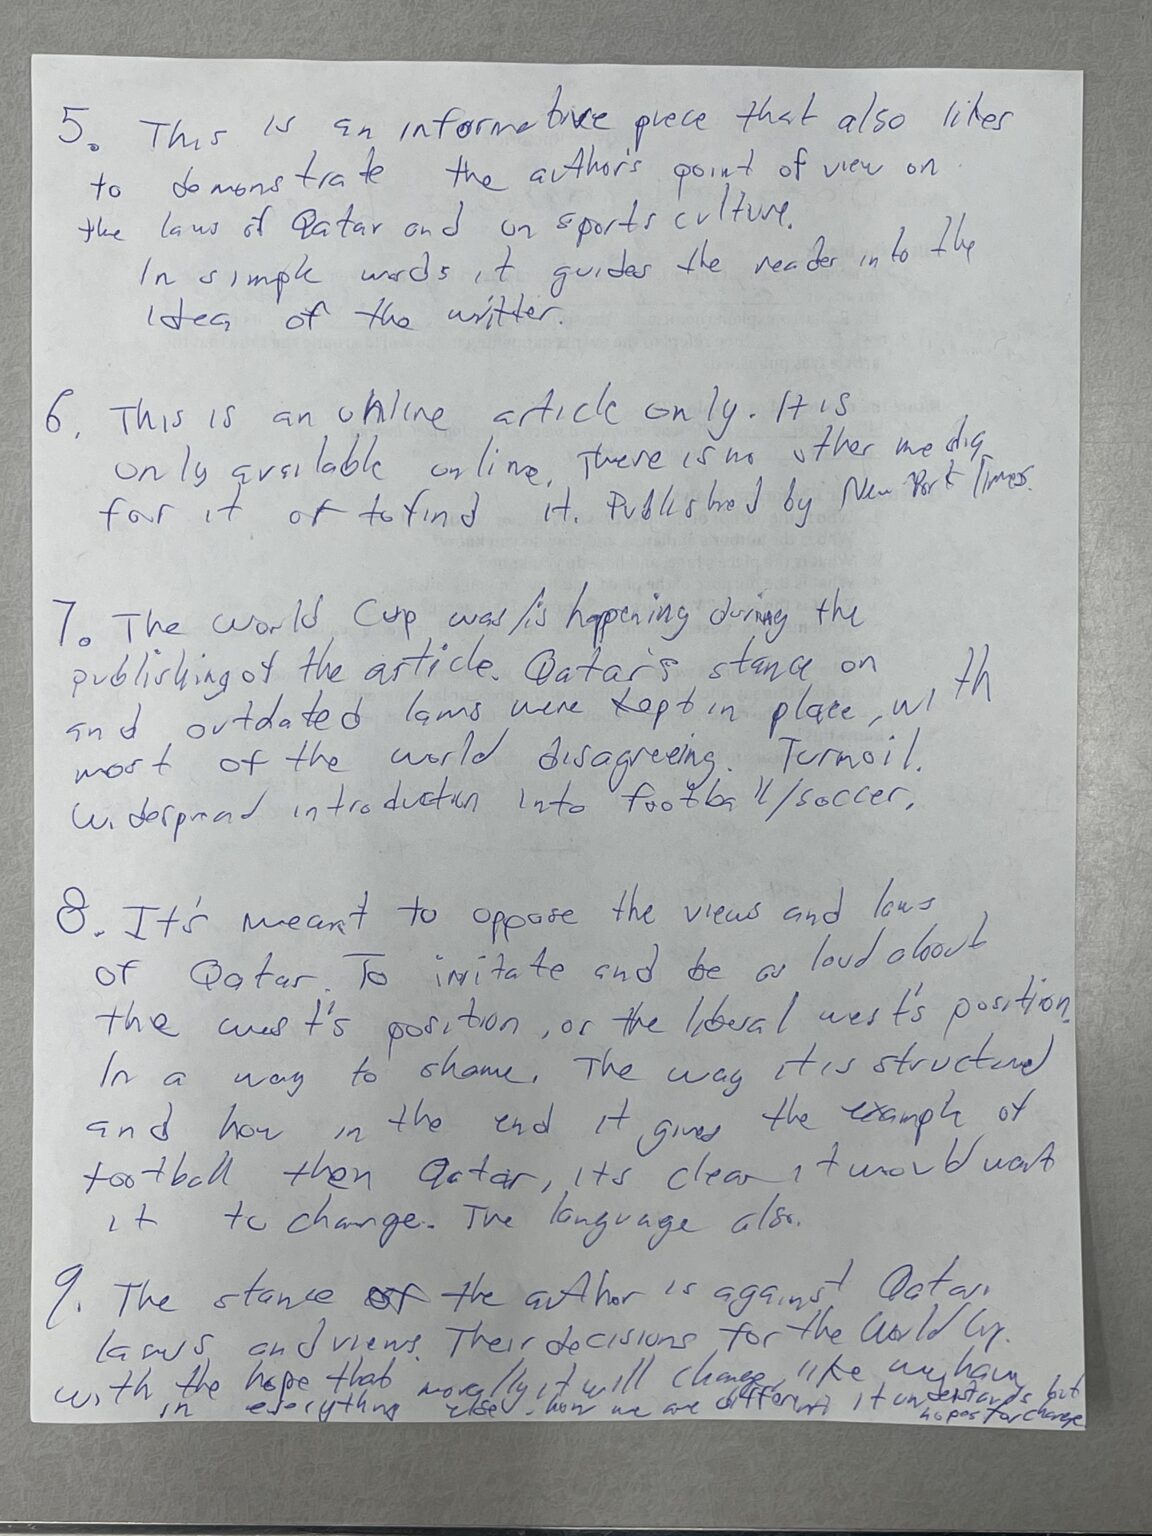 5. This is an informative piece that also likes
to demonstrate the author's point of view on
the laws of Qatar and on sports culture.
In simple words it guides the reader into the
idea of the writter.
6. This is an online article only. It is
only available online. There is no other media
for it or to find it. Published by New York Times.
7. The World Cup was/is happening during the
publishing of the article. Qatar's stance on
and outdated laws were kept in place, with
most of the world disagreeing. Turmoil.
Widespread introduction into football/soccer.
8. It's meant to oppose the views and laws
of Qatar. To imitate and be as loud about
the west's position, or the liberal west's position.
In a way to shame. The way it is structured
and how in the end it gives the example of
football then Qatar, its clear it would want
it to change. The language also.
9. The stance of the author is against Qatar
laws and views. Their decisions for the World Cup.
with the hope that morally it will change, like
in everything else. how we are different it understands but
hopes for change